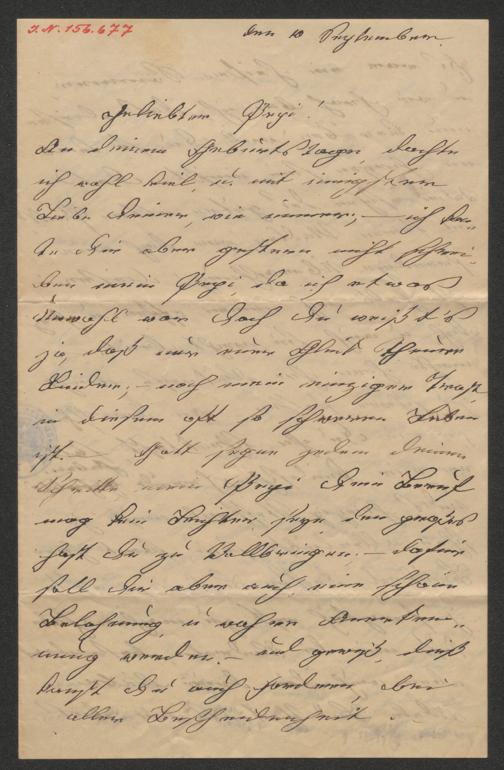 I.N. 156.677
den 10 September.
Geliebter Pepi!
An deinem Geburtstage, dachte
ich wohl viel, u. mit innigster
Liebe deiner, wie immer; – ich
dir aber gestern nicht schrei-
ben mein Pepi, da ich etwas
Unwohl war doch du weißt's
ja, daß nur euer Glück theure
Kinder; – noch mein einziger Trost
in diesem oft so schweren Leben
ist. – Gott segne jeden deiner
Schritte mein Pepi dein Beruf
mag kein leichter sein den
hast du zu Vollbringen. – dafür
soll dir aber auch eine schöne
Belohnung u wahre Anerken-
nung werden. – und gewiß, dieß
darfst du auch fordern, bei
aller Bescheidenheit.